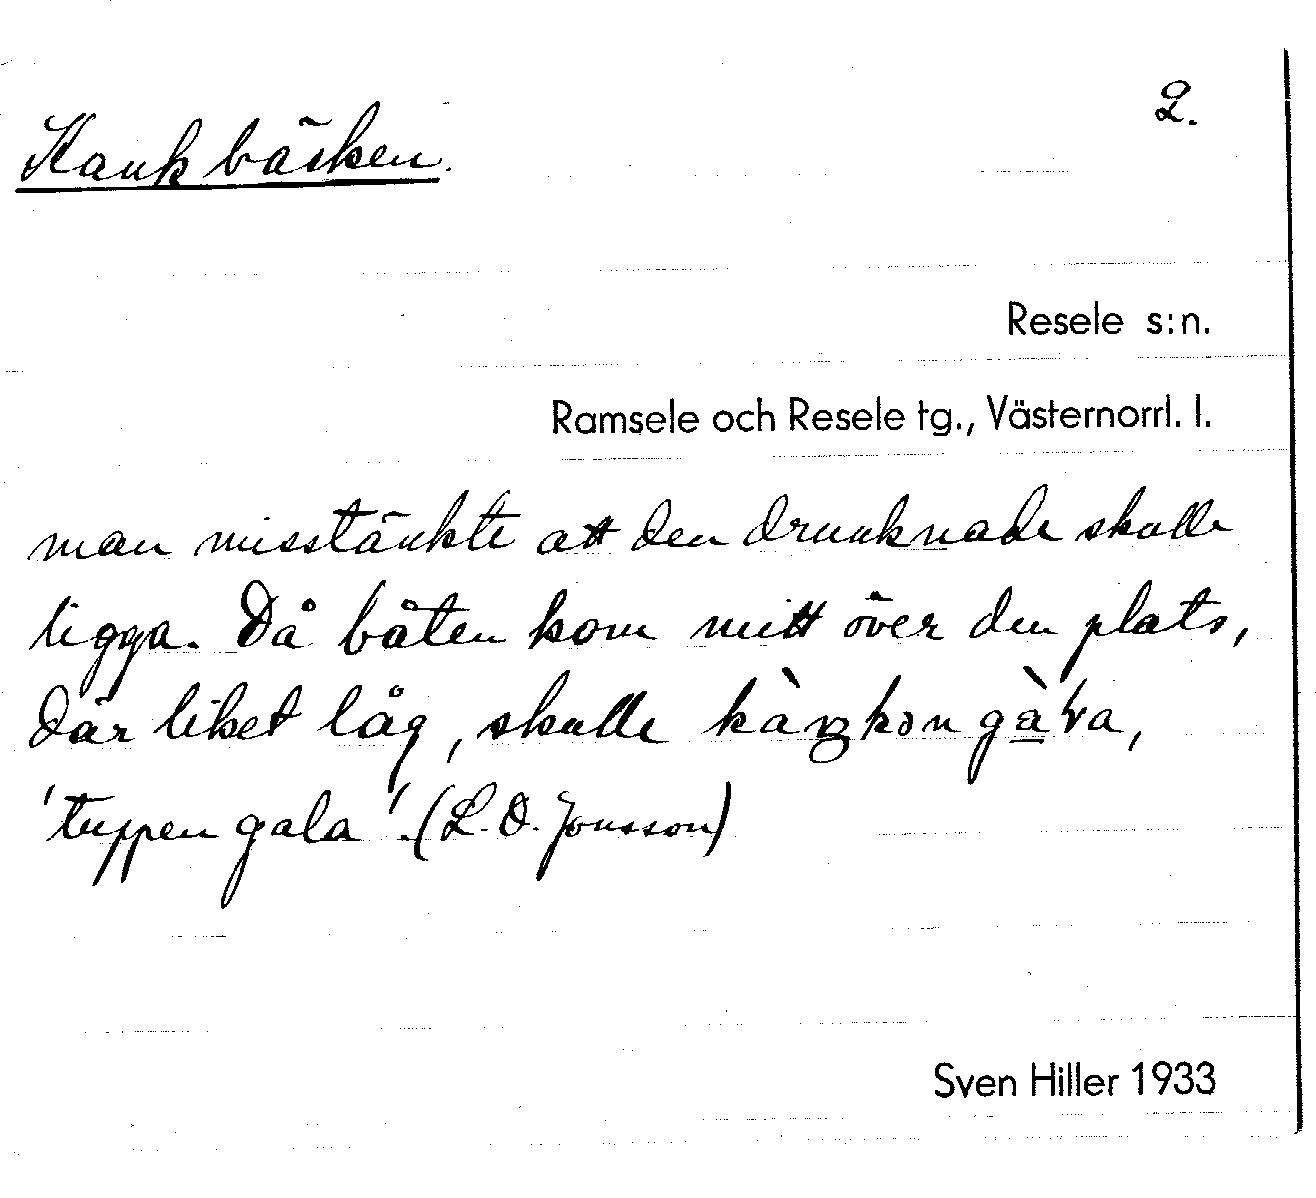 2.
Kankbäcken.
Resele s:n.
Ramsele och Resele tg., Västernorrl. l.
man misstänkte att den drunknade skulle
ligga. Då båten kom mitt över den plats,
där liket låg, skulle
'tuppen gala'. (L. O. Jonsson)
Sven Hiller 1933